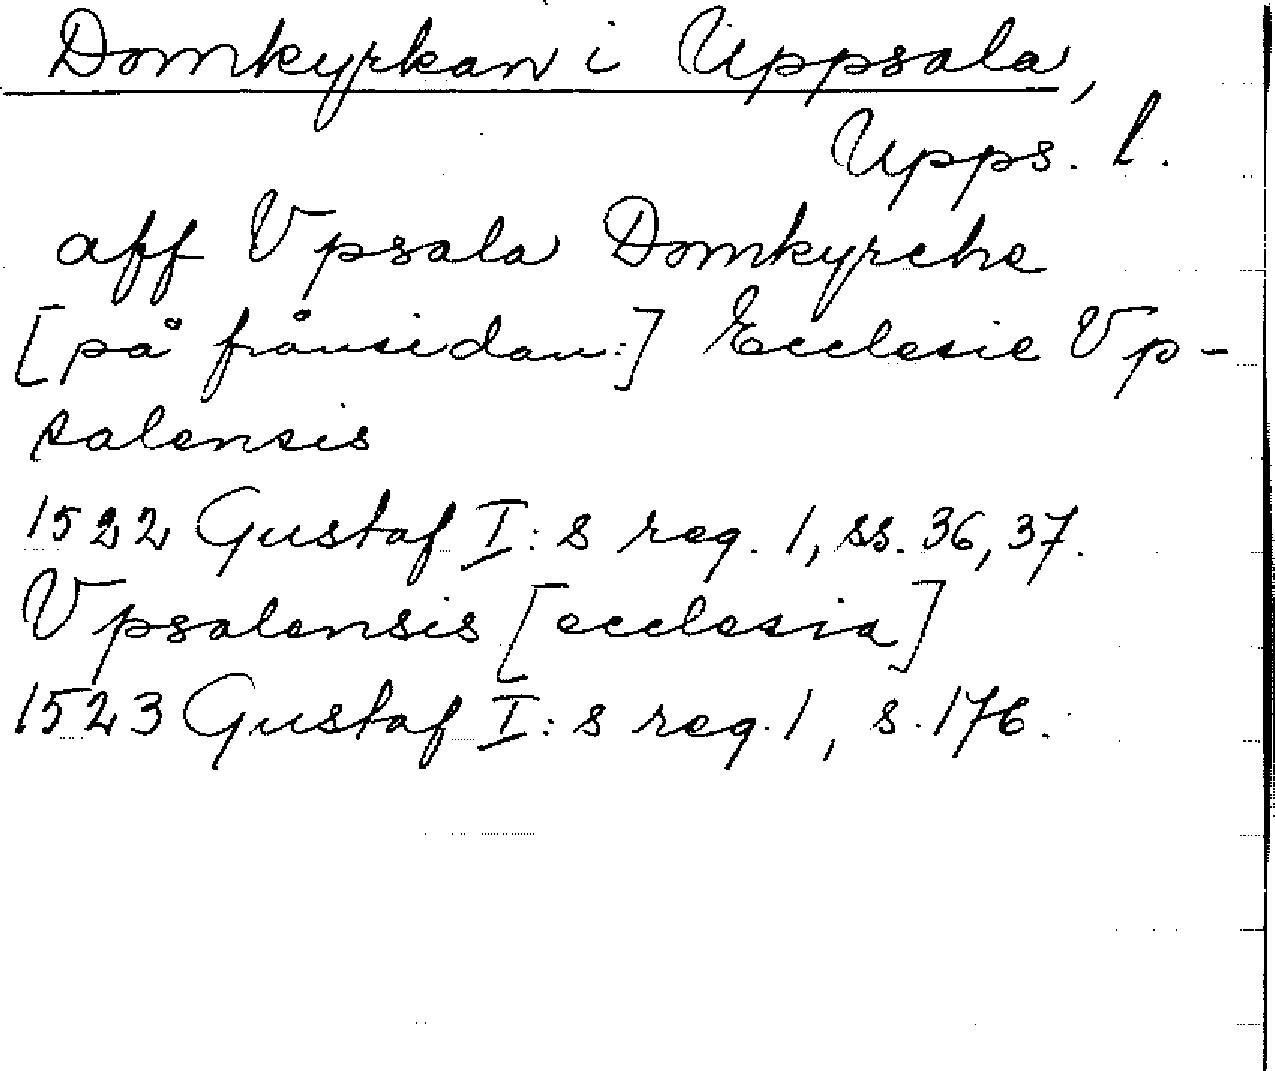 Domkyrkan i Uppsala,
Upps. l.
aff Vpsala Domkyrche
[på frånsidan:] Ecclesie Vp-
salensis
1522 Gustaf I:s reg. 1, ss. 36, 37.
Vpsalensis [ecclesia]
1523 Gustaf I:s reg. 1, s. 176.